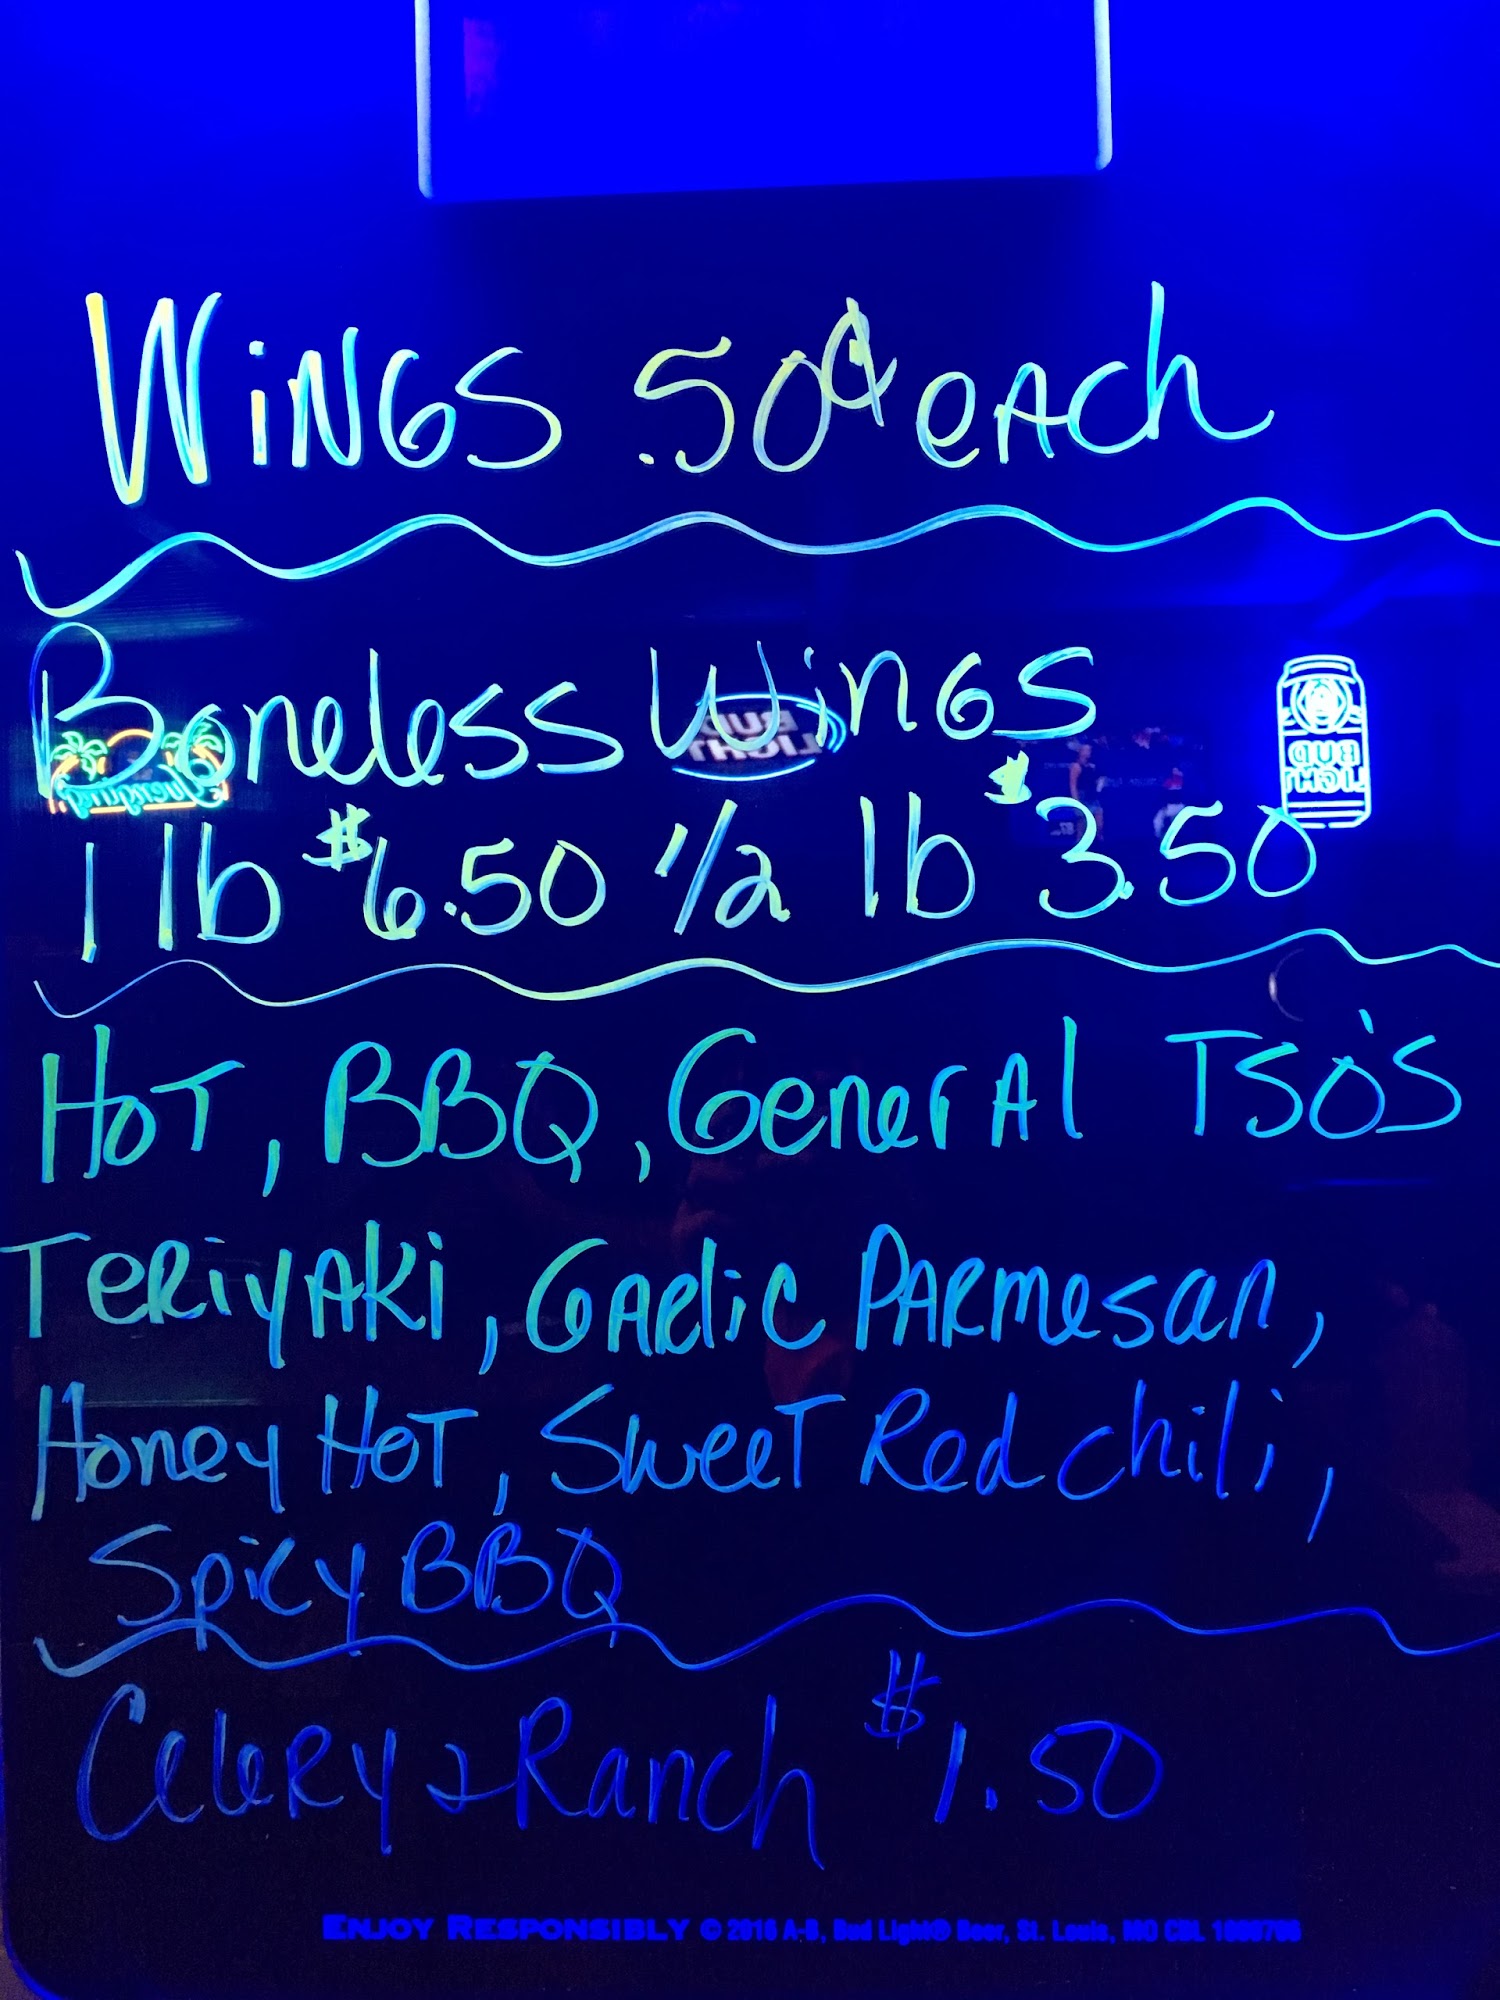 WiNGS .50¢ eACh
Boneless WiNGS
BUD
LIGHT
BUD
LIGHT
Yuengling
1 lb $6.50 1/2 lb $3.50
HOT, BBQ, GenerAl TSO'S
TeRiyAKi, GARlic PARmesan,
Honey HOT, SweeT Red chili,
Spicy BBQ
CeleRy & Ranch $1.50
ENJOY RESPONSIBLY © 2016 A-B, Bud Light® Beer, St. Louis, MO CBL